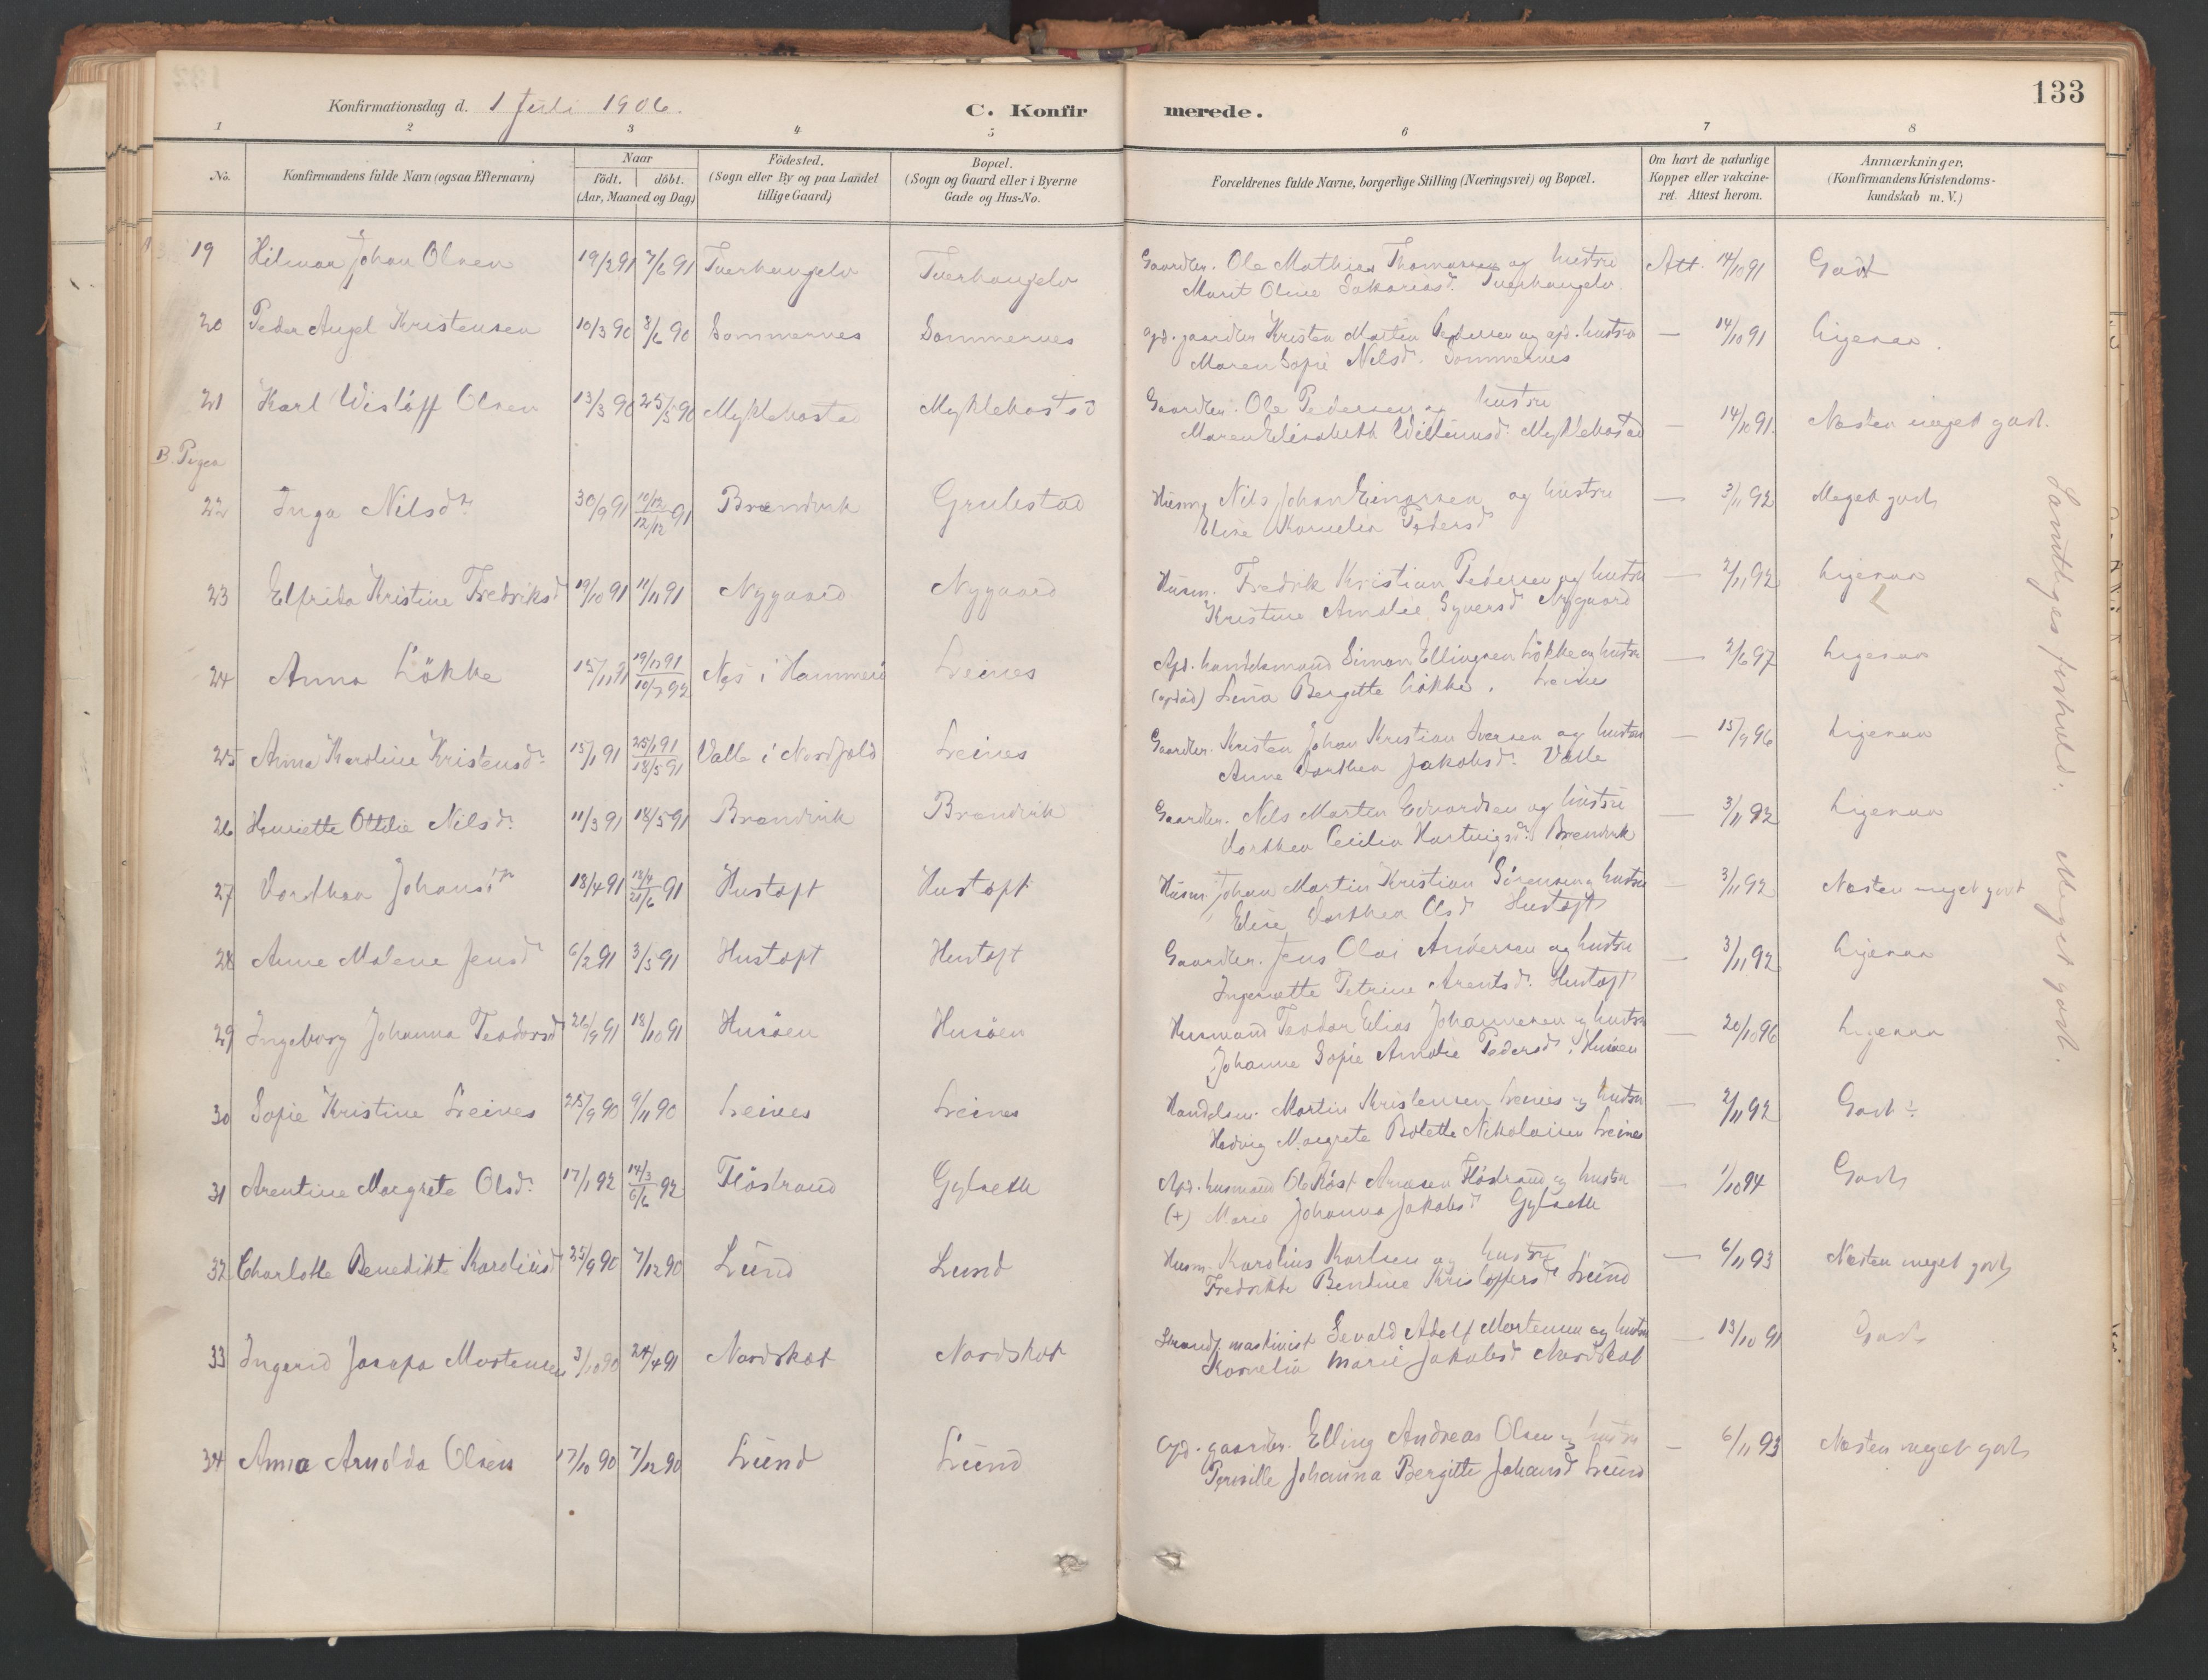 133
Konfirmationsdag d. 1 Juli 1906.
C. Konfirmerede.
1 2 3 4 5 6 7 8
No.
Konfirmandens fulde Navn (ogsaa Efternavn)
Naar
födt. döbt.
(Aar, Maaned og Dag)
Födested.
(Sogn eller By og paa Landet
tillige Gaard)
Bopæl.
(Sogn og Gaard eller i Byerne
Gade og Hus-No.
Forældrenes fulde Navne, borgerlige Stilling (Næringsvei) og Bopæl.
Om havt de naturlige
Kopper eller vakcine-
ret. Attest herom.
Anmærkninger.
(Konfirmandens Kristendoms-
kundskab m. V.)
19 Hilmar Johan Olsen 19/2 91 7/6 91 Tverhaugelv Tverhaugelv Gaardbr. Ole Mathias Thomassen og hustru Att. 14/10 91 Godt
Marit Oline Sakariasd. Tverhaugelv.
20 Peder Angel Kristensen 10/3 90 8/6 90 Sommernes Sommernes Gaardbr. Kristen Martin Pedersen og hustru — 14/10 91 Ligesaa.
Maren Sofie Nilsd. Sommernes
21 Karl Wislöff Olsen 13/3 90 25/5 90 Myklebostad Myklebostad Gaardbr. Ole Pedersen og hustru
Maren Elisabeth Myklebostad — 14/10 91. Næsten meget godt.
B. Piger
22 Inga Nilsdr. 30/9 91 12/12 91 Brændvik Grulestad Husm. Nils Johan Einarsen og hustru — 3/11 92 Meget godt
Elise Kornelia Pedersd.
23 Elfrida Kristine Fredriksd 19/10 91 11/11 91 Nygaard Nygaard Husm. Fredrik Kristian Pedersen og hustru — 2/11 92 Ligesaa
Kristine Amalie Syversd. Nygaard
24 Anna Lökke 15/11 91 Nes i Hammerö Leines Afd. handelsmand Simon Ellingsen Lökke og hustru — 2/6 97 Ligesaa
Lina Bergitte Lökke. Leines
25 Anna Karoline Kristensd. 15/1 91 25/1 91 18/5 91 Valle i Nordfold Leines Gaardbr. Kristen Johan Kristian Iversen og hustru — 15/9 96 Ligesaa
Anne Dorthea Jakobsd. Valle
26 Henriette Ottilie Nilsd. 11/3 91 18/5 91 Brændvik Brændvik Gaardbr. Nils Morten Edvardsen og hustru — 3/11 92 Ligesaa
Dorthea Cecilia Hartvigsd. Brændvik
27 Dorthea Johansdr. 18/4 91 21/6 91 Hustoft Hustoft Husm. Johan Martin Kristian Sörensen og hustru — 3/11 92 Næsten meget godt
Elise Dorthea Olsd. Hustoft
28 Anne Malene Jensd. 6/2 91 3/5 91 Hustoft Hustoft Gaardbr. Jens Olai Andersen og hustru — 3/11 92 Ligesaa
Ingeranette Petrine Arentsd. Hustoft
29 Ingeborg Johanna Teodorsd 21/9 91 18/10 91 Husöen Husöen Husmand Teodor Elias Johannesen og hustru — 20/10 96 Ligesaa
Johanne Sofie Amalie Pedersd. Husöen
30 Sofie Kristine Leines 25/9 90 9/11 90 Leines Leines Handelsm. Martin Kristensen Leines og hustru — 2/11 92 Godt ÷
Hedvig Margrete Bolette Nikolaisen Leines
31 Arentine Margrete Olsd. 17/1 92 14/3 6/6 92 Flöstrand Gylseth Afd. husmand Ole Röst Arntsen Flöstrand og hustru — 1/10 94 Godt
(+) Marie Johanna Jakobsd. Gylseth
32 Charlotte Benedikte Karoliusd 25/9 90 7/12 90 Lund Lund Husm. Karolius Karlsen og hustru — 6/11 93 Næsten meget godt
Fredrikke Bentine Kristoffersd. Lund
33 Ingerid Josefa Mortensen 3/10 90 24/4 91 Nordskot Nordskot maskinist Sevald Adolf Mortensen og hustru — 13/10 91 Godt
Kornelia Marie Jakobsd. Nordskot
34 Anna Arnolda Olsen 17/10 90 7/12 90 Lund Lund Afd. gaardbr. Elling Andreas Olsen og hustru — 6/11 93 Næsten meget godt
Pernille Johanna Bergitte Johansd. Lund
Samtliges forhold: Meget godt.